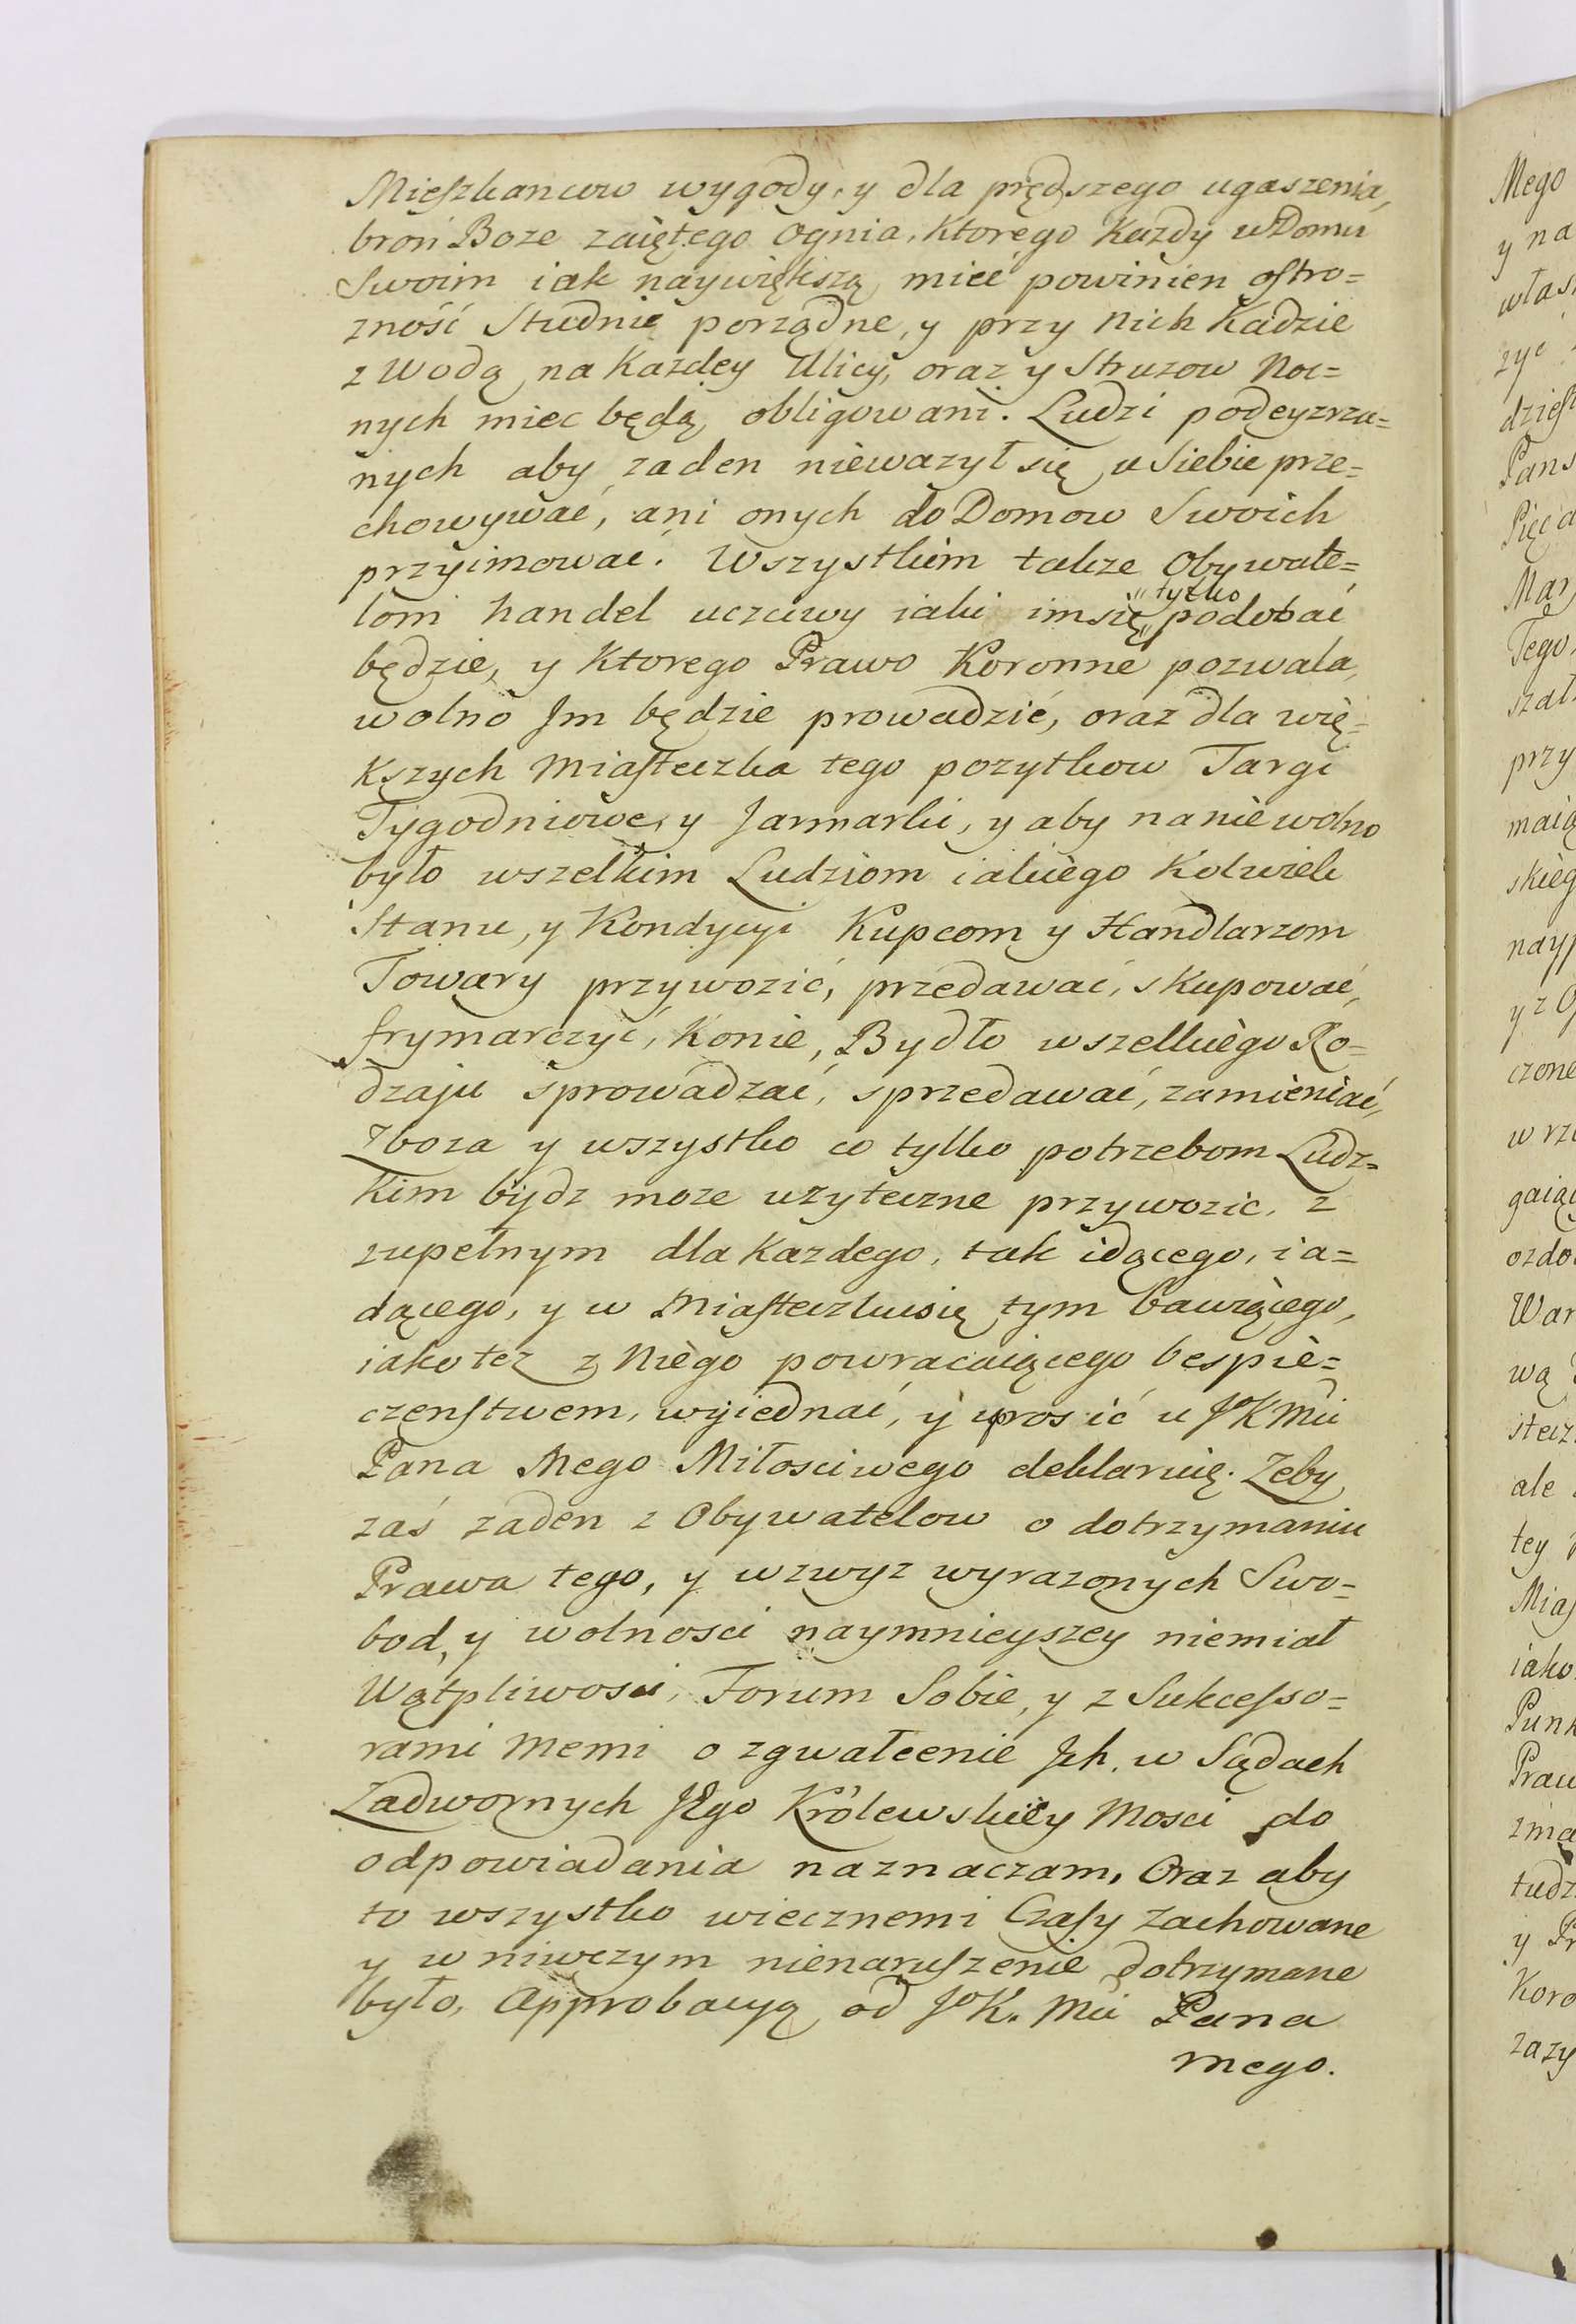 Mieszkancow wygody, y dla prędszego ugaszenia,
broń Boze zaiętego Ognia, Ktorego Kazdy w Domu
Swoim iak naywiększą mieć powinien ostro=
zność Studnie porządne, y przy Nich Kadzie
z Wodą na Kazdey Ulicy, oraz y Struzow Noc=
nych miec będą obligowani. Ludzi podeyzrza=
nych aby zaden niewazył się u Siebie prze=
chowywać, ani onych do Domow Swoich
przyimować. Wszystkim takze Obywate=
lom handel uczciwy iaki im się tylko podobać
będzie, y Ktorego Prawo Koronne pozwala,
wolno Im będzie prowadzić, oraz dla wię=
kszych Miasteczka tego pozytkow Targi
Tygodniowe, y Jarmarki, y aby na nie wolno
było wszelkim Ludziom iakiego Kolwiek
Stanu, y Kondycyi Kupcom y Handlarzom
Towary przywozić, przedawać, skupować,
frymarczyć, Konie, Bydło wszelkiego Ro=
dzaju sprowadzać, sprzedawać, zamieniać,
Zboza y wszystko co tylko potrzebom Ludz=
kim bydz moze uzyteczne przywozic, z
zupełnym dla Kazdego, tak idącego, ia=
dącego, y w Miasteczku się tym bawiącego,
iako tez z Niego powracaiącego bespie=
czenstwem, wyiednać, y uprosić u JK Mci
Pana Mego Miłosciwego deklaruię. Zeby
zaś zaden z Obywatelow o dotrzymaniu
Prawa tego, y wzwyz wyrazonych Swo=
bod, y wolnosci naymnieyszey niemiał
Wątpliwosci, Forum Sobie, y z Sukcesso=
rami Memi o zgwałcenie Ich, w Sądach
Zadwornych JEgo Królewskiey Mosci do
odpowiadania naznaczam, Oraz aby
to wszystko wiecznemi Czasy Zachowane
y w niwczym nienaruszenie dotrzymane
było, Approbacyą od JK. Mci Pana
Mego.
Mego
y na
włas
zyc
dzies
Pans
Pięc
Mar
Tego
szał
przy
maią
skieg
nayp
y z O
czone
w rz
gaiąc
ozdo
War
wą
stecz
ale
tey
Mias
iako
Punk
Praw
zma
tudz
y Pr
Koro
zazy